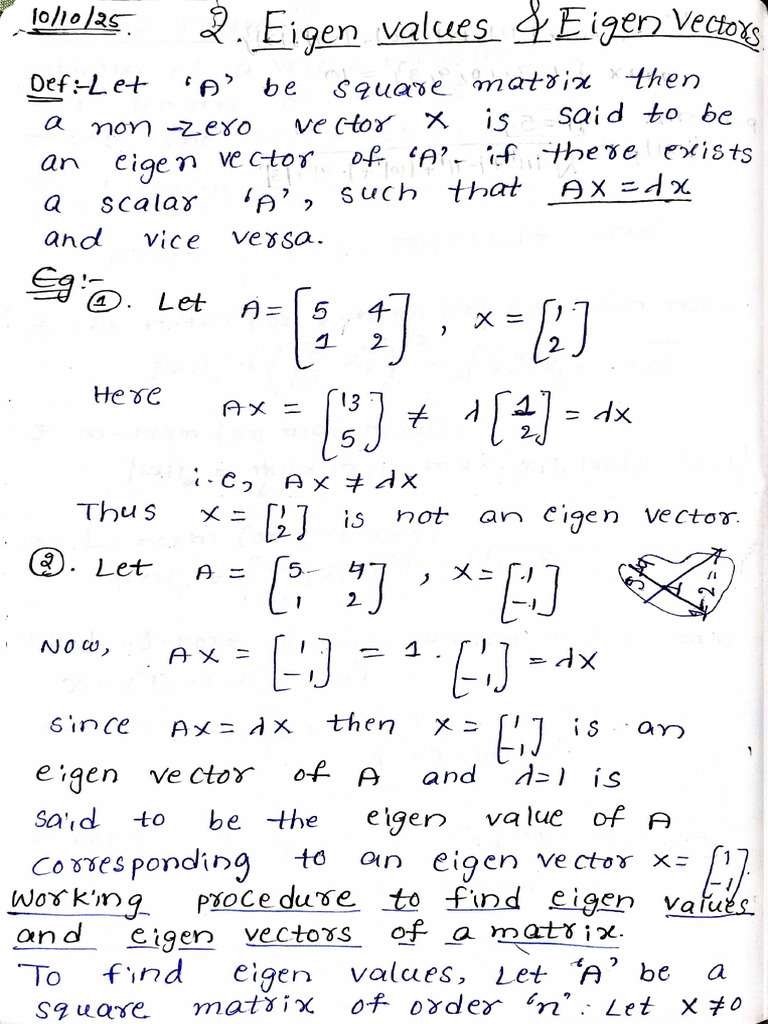 10/10/25.
2. Eigen values & Eigen Vectors
Def:- Let 'A' be square matrix then
a non-zero vector X is said to be
an eigen vector of 'A' if there exists
a scalar 'A', such that AX = λx
and vice versa.
Eg:-
①. Let A = [5 4; 1 2], X = [1; 2]
Here AX = [13; 5] ≠ λ[1; 2] = λx
i.e, AX ≠ λX
Thus X = [1; 2] is not an eigen vector.
②. Let A = [5 4; 1 2], X = [1; -1]
Now, AX = [1; -1] = 1 · [1; -1] = λx
since AX = λX then X = [1; -1] is an
eigen vector of A and λ=1 is
said to be the eigen value of A
corresponding to an eigen vector X = [1; -1].
Working procedure to find eigen values
and eigen vectors of a matrix.
To find eigen values, Let 'A' be a
square matrix of order 'n'. Let X ≠ 0